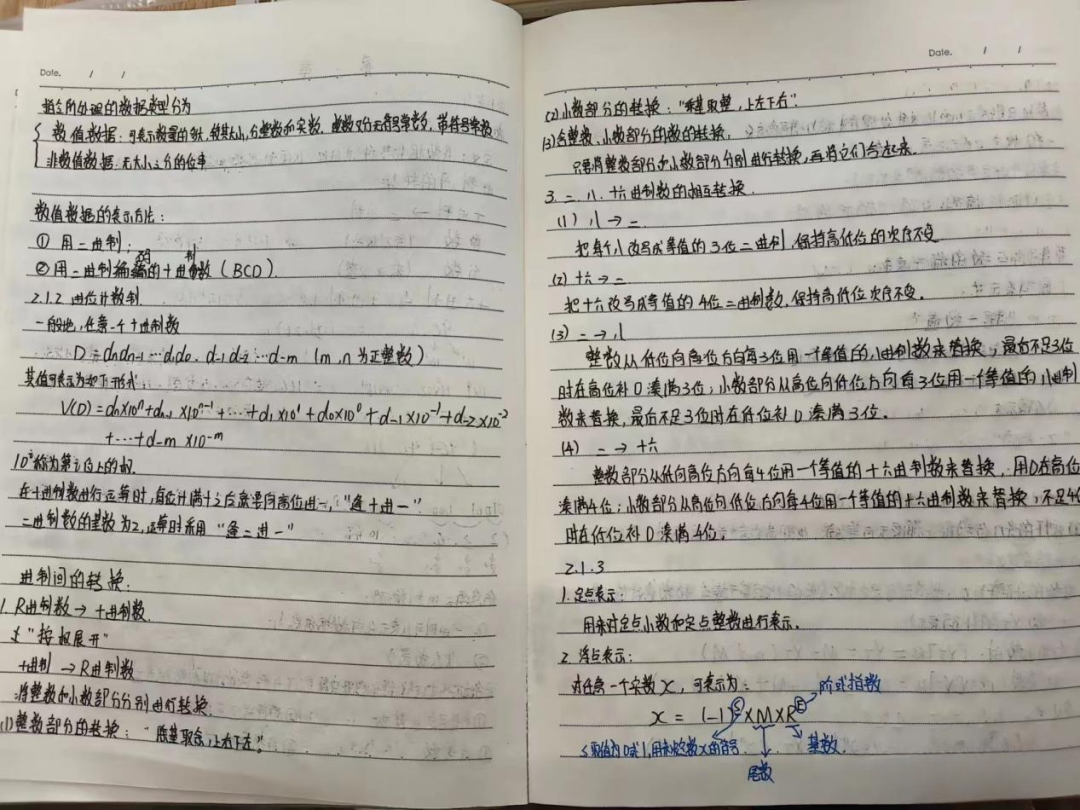 Date. / /
指令所处理的数据类型分为
数值数据:可表示数量的多少,能其大小,分整数和实数,整数又分无符号整数,带符号整数
非数值数据:无大小之分的位串
数值数据的表示方法:
① 用二进制;
②用二进制编码的十进制数(BCD).
2.1.2 进位计数制
一般地,任意一个十进制数
D = dndn-1…d1d0.d-1d-2…d-m (m,n为正整数)
其值可表示为如下形式
V(D)=dn×10ⁿ+dn-1×10ⁿ⁻¹+…+d1×10¹+d0×10⁰+d-1×10⁻¹+d-2×10⁻²
+…+d-m×10⁻ᵐ
10ⁱ称为第i位上的权.
在十进制数进行运算时,每位计满十之后就要向高位进一,"逢十进一"
二进制数的基数为2,运算时采用"逢二进一"
进制间的转换:
1.R进制数→十进制数.
"按权展开"
十进制→R进制数
将整数和小数部分分别进行转换.
(1)整数部分的转换:"除基取余,上右下左".
Date. / /
(2)小数部分的转换:"乘基取整,上左下右".
(3)含整数、小数部分的数的转换.
只要将整数部分和小数部分分别进行转换,再将它们合起来.
3.二、八、十六进制数的相互转换.
(1) 八→二
把每个八改写成等值的3位二进制,保持高低位的次序不变
(2)十六→二
把十六改写成等值的4位二进制数,保持高低位次序不变.
(3) 二→八
整数从低位向高位方向每3位用一个等值的八进制数来替换,最后不足3位
时在高位补0凑满3位;小数部分从高位向低位方向每3位用一个等值的八进制
数来替换,最后不足3位时在低位补0凑满3位.
(4) 二→十六
整数部分从低向高位方向每4位用一个等值的十六进制数来替换,用0在高位
凑满4位;小数部分从高位向低位方向每4位用一个等值的十六进制数来替换,不足4位
时在低位补0凑满4位.
2.1.3
1.定点表示:
用来对定点小数和定点整数进行表示.
2.浮点表示:
对任意一个实数x,可表示为: 阶或指数
x=(-1)ˢ×M×Rᴱ
S取值为0或1,用来数x的符号. 基数.
尾数